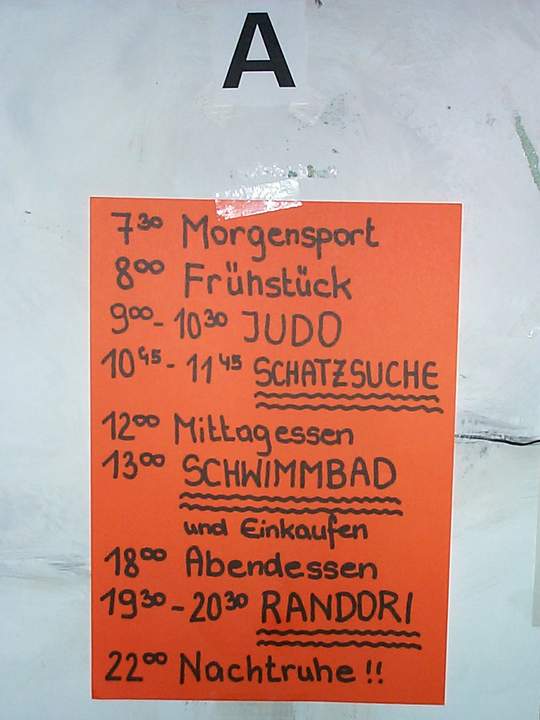 A
7³⁰ Morgensport
8⁰⁰ Frühstück
9⁰⁰-10³⁰ JUDO
10⁴⁵-11⁴⁵ SCHATZSUCHE
12⁰⁰ Mittagessen
13⁰⁰ SCHWIMMBAD
und Einkaufen
18⁰⁰ Abendessen
19³⁰-20³⁰ RANDORI
22⁰⁰ Nachtruhe!!